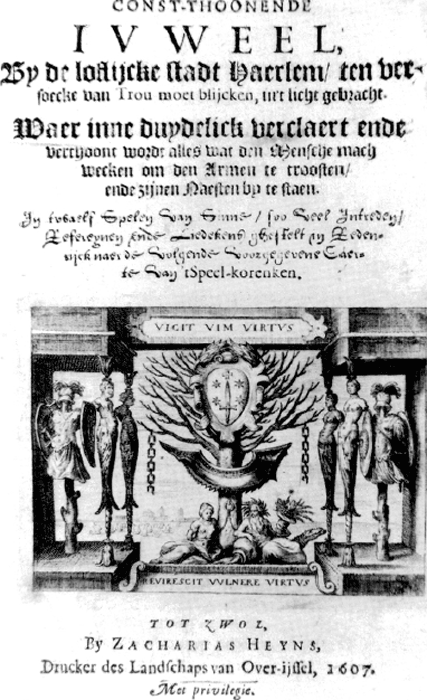 CONST-THOONENDE
IVWEEL,
By de loflijcke stadt Haerlem/ ten ver-
soecke van Trou moet blijcken, in't licht gebracht.
Waer inne duydelick verclaert ende
verthoont wordt alles wat den Mensche mach
wecken om den Armen te troosten/
ende zijnen Naesten by te staen.
In tvvaelf Spelen van Sinne/ soo veel Intreden/
Refereynen ende Liedekens ghestelt in Reden-
rijck naer de volgende voorgegevene Caer-
te van 'tSpeel-korenken.
VICIT VIM VIRTVS
REVIRESCIT VVLNERE VIRTVS
TOT ZWOL,
By ZACHARIAS HEYNS,
Drucker des Landschaps van Over-ijssel, 1607.
Met privilegie.